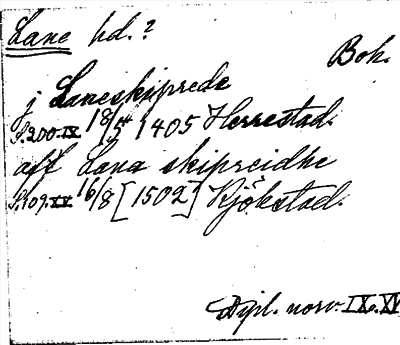 Lane hd.?
Boh.
j Laneskiprede
S.200.IX 18/5 1405 Herrestad.
aff Lana skipreidhe
S.109.XV 16/8 [1502] Kjökstad.
Dipl. norv. IX. XV